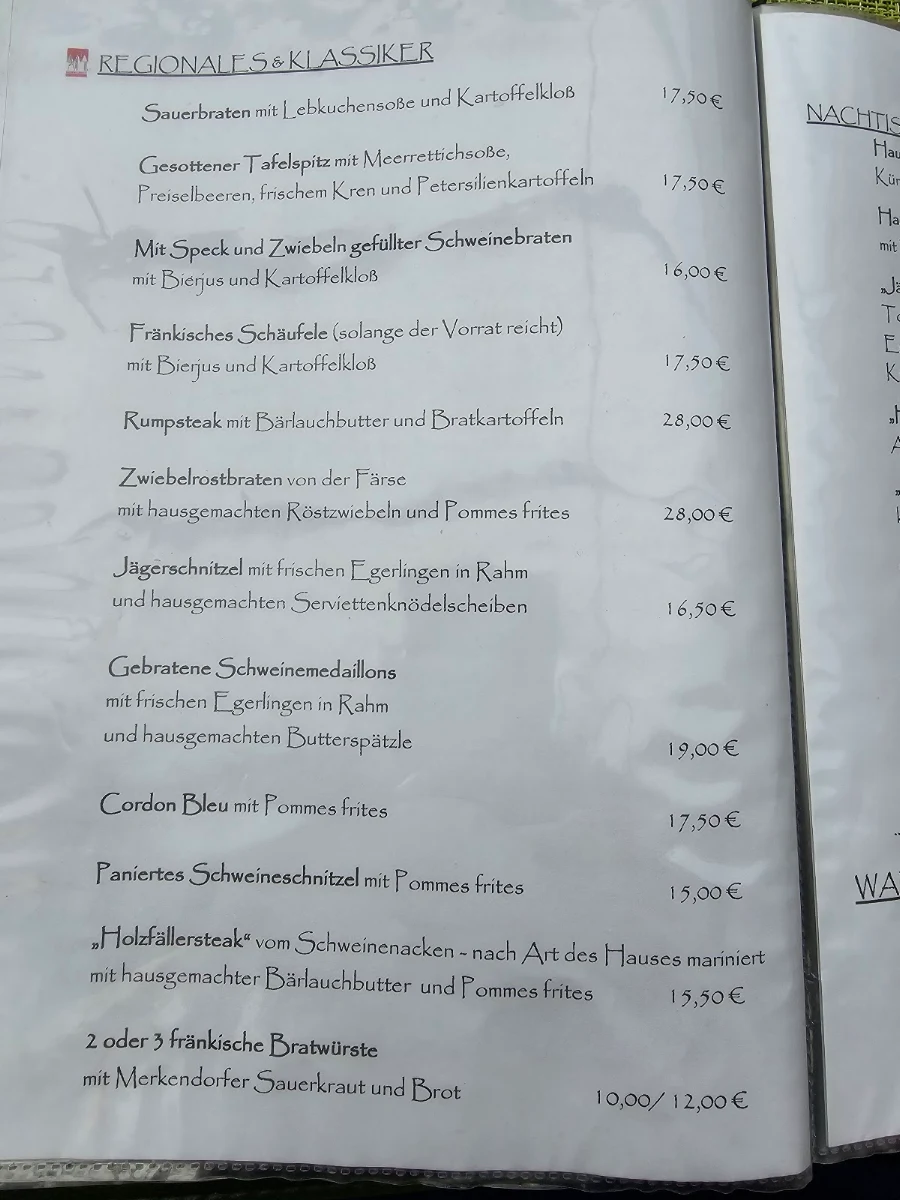 REGIONALES & KLASSIKER
Sauerbraten mit Lebkuchensoße und Kartoffelkloß 17,50 €
Gesottener Tafelspitz mit Meerrettichsoße,
Preiselbeeren, frischem Kren und Petersilienkartoffeln 17,50 €
Mit Speck und Zwiebeln gefüllter Schweinebraten
mit Bierjus und Kartoffelkloß 16,00 €
Fränkisches Schäufele (solange der Vorrat reicht)
mit Bierjus und Kartoffelkloß 17,50 €
Rumpsteak mit Bärlauchbutter und Bratkartoffeln 28,00 €
Zwiebelrostbraten von der Färse
mit hausgemachten Röstzwiebeln und Pommes frites 28,00 €
Jägerschnitzel mit frischen Egerlingen in Rahm
und hausgemachten Serviettenknödelscheiben 16,50 €
Gebratene Schweinemedaillons
mit frischen Egerlingen in Rahm
und hausgemachten Butterspätzle 19,00 €
Cordon Bleu mit Pommes frites 17,50 €
Paniertes Schweineschnitzel mit Pommes frites 15,00 €
„Holzfällersteak“ vom Schweinenacken - nach Art des Hauses mariniert
mit hausgemachter Bärlauchbutter und Pommes frites 15,50 €
2 oder 3 fränkische Bratwürste
mit Merkendorfer Sauerkraut und Brot 10,00/ 12,00 €
NACHTIS
Hau
Kür
Ha
mit